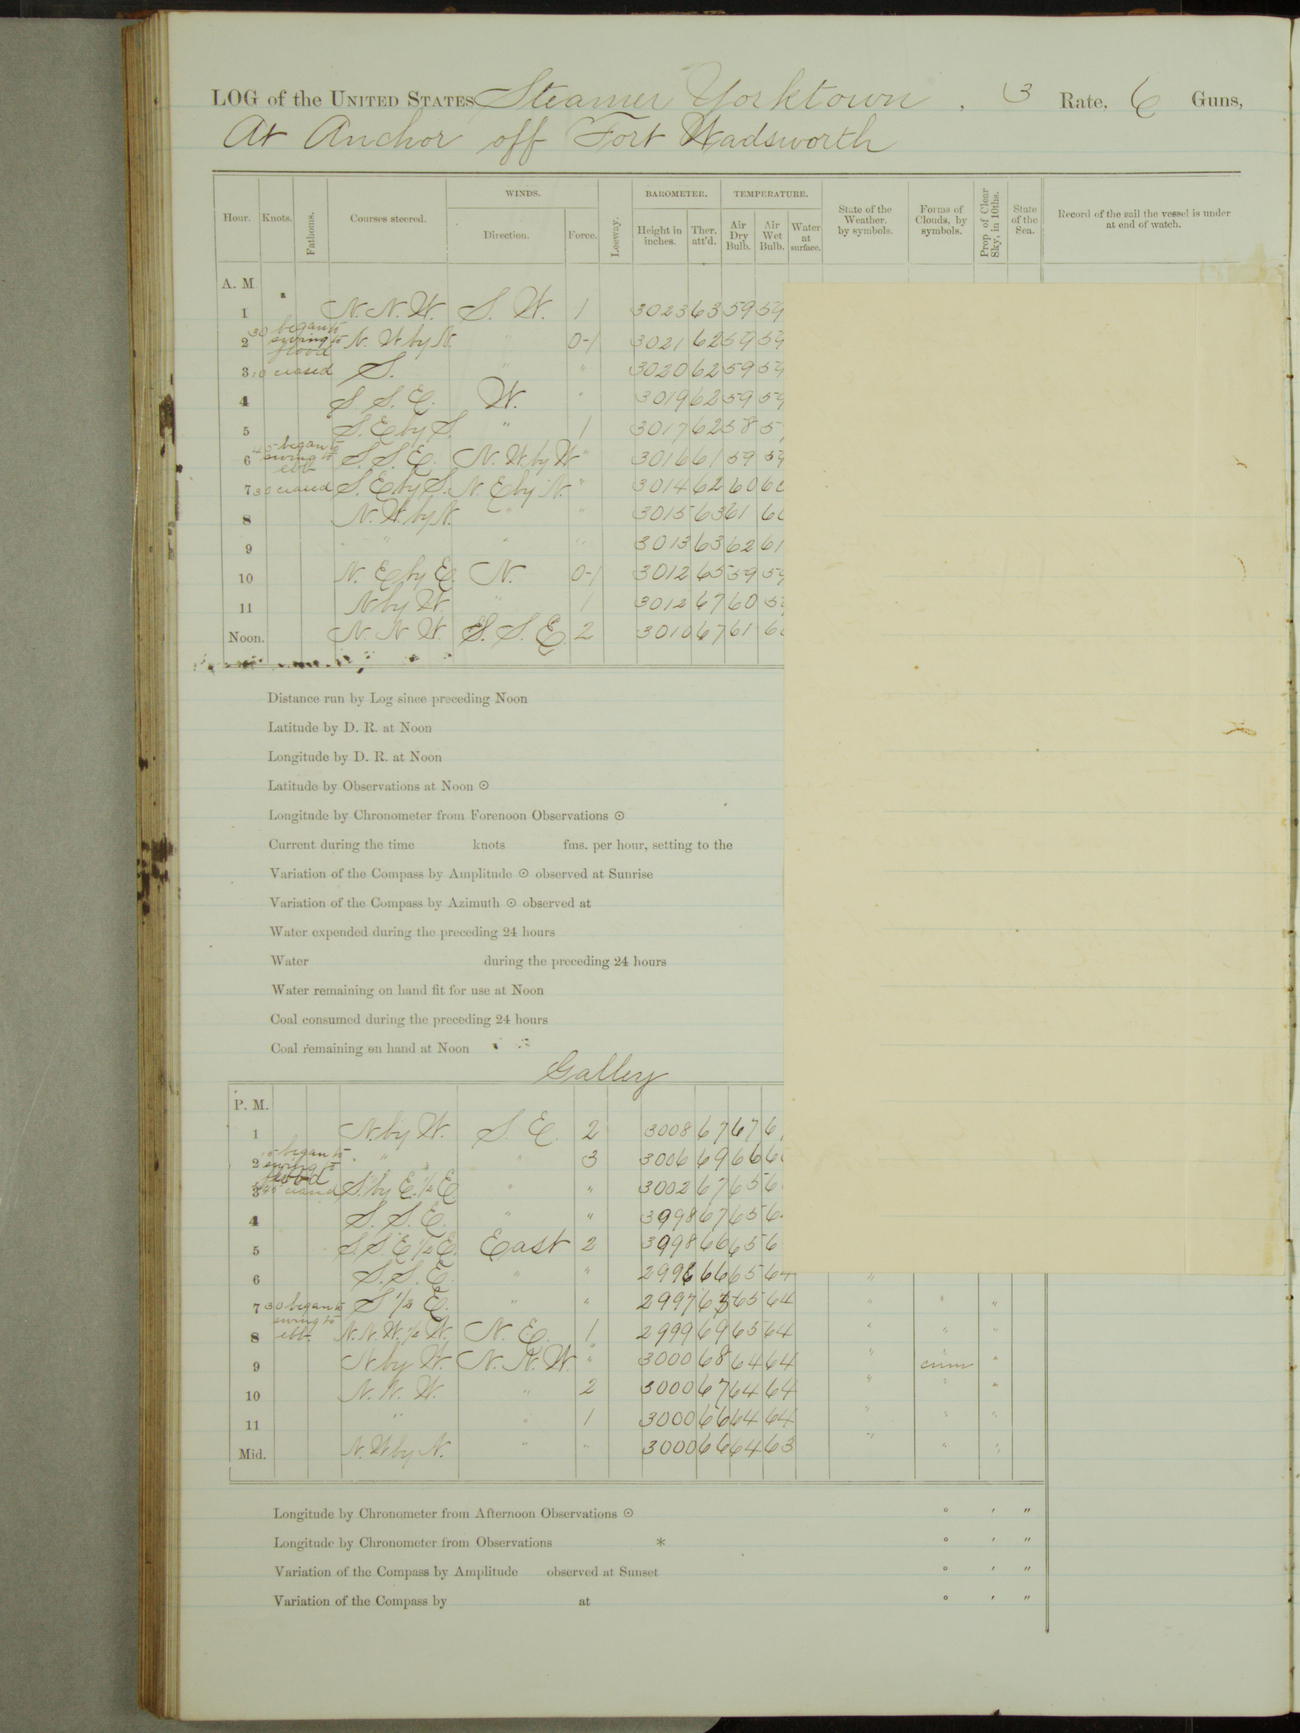 LOG of the UNITED STATES Steamer Yorktown, 3 Rate, 6 Guns,
At Anchor off Fort Wadsworth
Hour. Knots. Fathoms. Courses steered. WINDS. Direction. Force. Leeway. BAROMETER. Height in inches. Ther. att'd. TEMPERATURE. Air Dry Bulb. Air Wet Bulb. Water at surface. State of the Weather. by symbols. Forms of Clouds, by symbols. Prop of Clear Sky, in 10ths. State of the Sea. Record of the sail the vessel is under at end of watch.
A. M
1 N. N. W. S. W. 1 3023 63 59 59
2 30 began to swing to flood N. W by N. " 0-1 3021 62 59 59
3 10 ceased S. " " 3020 62 59 59
4 S. S. E. W. " 3019 62 59 59
5 S. E by S. " 1 3017 62 58 5
6 45 began to swing to ebb S. S. E. N. W by W " 3016 61 59 59
7 30 ceased S. E by S. N. E by N. " 3014 62 60 60
8 N. W by N. " " 3015 63 61 60
9 " " " 3013 63 62 61
10 N. E by E. N. 0-1 3012 65 59 59
11 N by W " 1 3012 67 60 5
Noon. N. N W. S. S. E. 2 3010 67 61 60
Distance run by Log since preceding Noon
Latitude by D. R. at Noon
Longitude by D. R. at Noon
Latitude by Observations at Noon ☉
Longitude by Chronometer from Forenoon Observations ☉
Current during the time knots fms. per hour, setting to the
Variation of the Compass by Amplitude ☉ observed at Sunrise
Variation of the Compass by Azimuth ☉ observed at
Water expended during the preceding 24 hours
Water during the preceding 24 hours
Water remaining on hand fit for use at Noon
Coal consumed during the preceding 24 hours
Coal remaining on hand at Noon
Galley
P. M.
1 N. by W. S. E. 2 3008 67 67 6
2 began to swing to flood " " 3 3006 69 66 6
3 ceased S. by E. ½ E " " 3002 67 65 6
4 S. S. E. " " 3998 67 65 6
5 S. S. E ½ E. East 2 3998 66 65 6
6 S. S. E. " " 2996 66 65 64 "
7 30 began to swing to S ½ E. " " 2997 63 65 64 " " "
8 ebb. N. N. W. ½ W. N. E. 1 2999 69 65 64 " " "
9 N by W. N. N. W. " 3000 68 64 64 " cum "
10 N. N. W. " 2 3000 67 64 64 " " "
11 " " 1 3000 66 64 64 " " "
Mid. N. W by N. " " 3000 66 64 63 " " "
Longitude by Chronometer from Afternoon Observations ☉ ° ′ ″
Longitude by Chronometer from Observations * ° ′ ″
Variation of the Compass by Amplitude observed at Sunset ° ′ ″
Variation of the Compass by at ° ′ ″